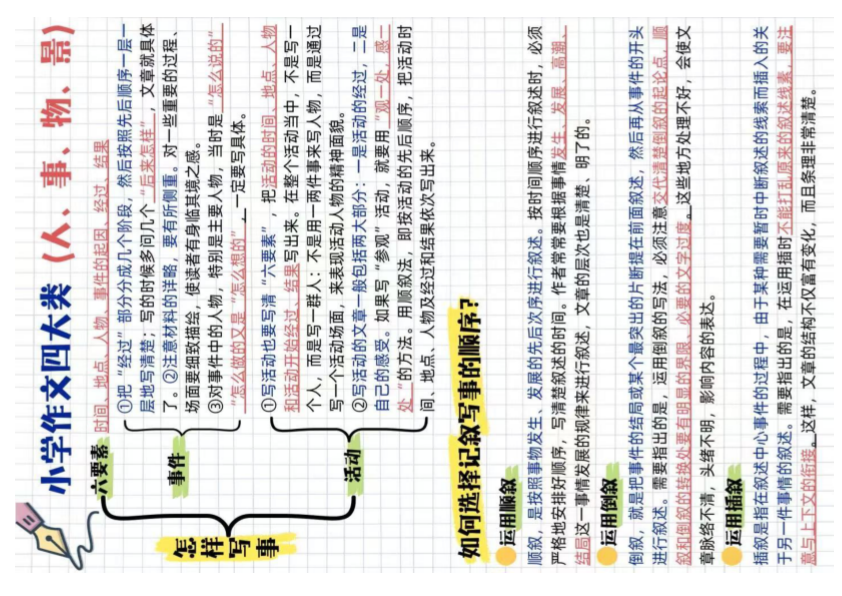 小学作文四大类（人、事、物、景）
怎样写事
六要素
时间、地点、人物、事件的起因、经过、结果
事件
①把“经过”部分分成几个阶段，然后按照先后顺序一层一
层地写清楚；写的时候多问几个“后来怎样”，文章就具体
了。②注意材料的详略，要有所侧重。对一些重要的过程、
场面要细致描绘，使读者有身临其境之感。
③对事件中的人物，特别是主要人物，当时是“怎么说的”
“怎么做的又是“怎么想的”，一定要写具体。
活动
①写活动也要写清“六要素”，把活动的时间、地点、人物
和活动开始经过、结果写出来。在整个活动当中，不是写一
个人，而是写一群人：不是用一两件事来写人物，而是通过
写一个活动场面，来表现活动人物的精神面貌。
②写活动的文章一般包括两大部分：一是活动的经过，二是
自己的感受。如果写“参观”活动，就要用“观一处，感一
处”的方法。用顺叙法，即按活动的先后顺序，把活动时
间、地点、人物及经过和结果依次写出来。
如何选择记叙写事的顺序？
运用顺叙
顺叙，是按照事物发生、发展的先后次序进行叙述。按时间顺序进行叙述时，必须
严格地安排好顺序，写清楚叙述的时间。作者常常要根据事情发生、发展、高潮、
结局这一事情发展的规律来进行叙述，文章的层次也是清楚、明了的。
运用倒叙
倒叙，就是把事件的结局或某个最突出的片断提在前面叙述，然后再从事件的开头
进行叙述。需要指出的是，运用倒叙的写法，必须注意交代清楚倒叙的起论点，顺
叙和倒叙的转换处要有明显的界限、必要的文字过度。这些地方处理不好，会使文
章脉络不清，头绪不明，影响内容的表达。
运用插叙
插叙是指在叙述中心事件的过程中，由于某种需要暂时中断叙述的线索而插入的关
于另一件事情的叙述。需要指出的是，在运用插时不能打乱原来的叙述线索，要注
意与上下文的衔接。这样，文章的结构不仅富有变化，而且条理非常清楚。